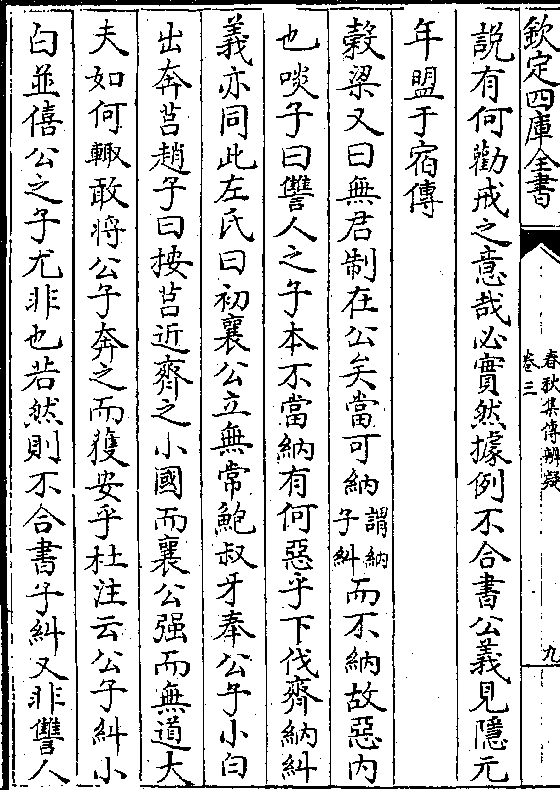 欽定四庫全書
春秋集傳辨疑
卷三
九
說有何勸戒之意哉必實然據例不合書公義見隱元
年盟于宿傳
穀梁又曰無君制在公矣當可納謂納子糾而不納故惡内
也啖子曰讐人之子本不當納有何惡乎下伐齊納糾
義亦同此左氏曰初襄公立無常鮑叔牙奉公子小白
出奔莒趙子曰按莒近齊之小國而襄公强而無道大
夫如何輙敢將公子奔之而獲安乎杜注云公子糾小
白並僖公之子尤非也若然則不合書子糾又非讐人